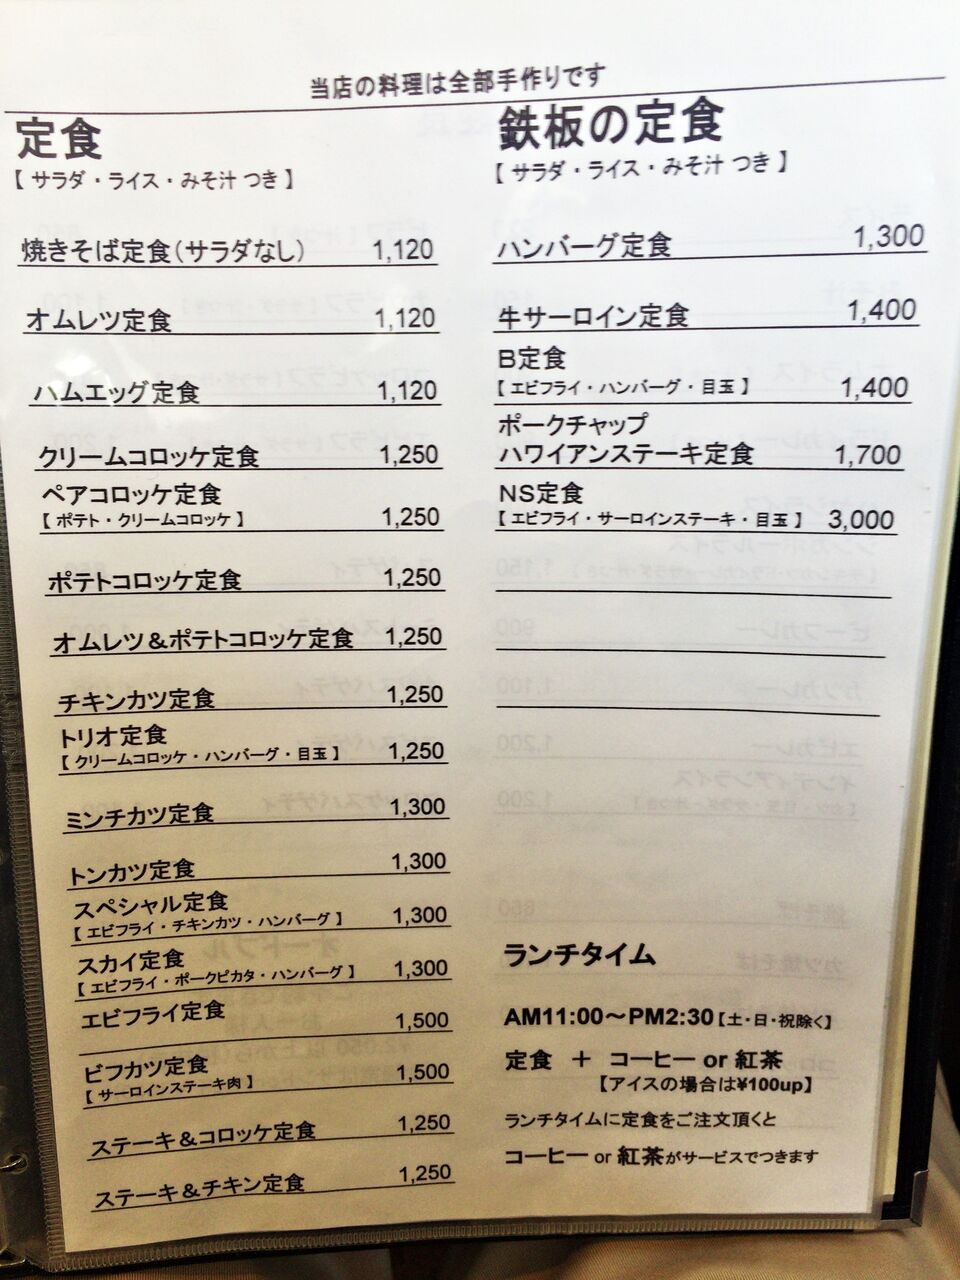 当店の料理は全部手作りです
定食
【 サラダ・ライス・みそ汁 つき 】
焼きそば定食(サラダなし) 1,120
オムレツ定食 1,120
ハムエッグ定食 1,120
クリームコロッケ定食 1,250
ペアコロッケ定食
【 ポテト・クリームコロッケ 】 1,250
ポテトコロッケ定食 1,250
オムレツ&ポテトコロッケ定食 1,250
チキンカツ定食 1,250
トリオ定食
【 クリームコロッケ・ハンバーグ・目玉 】 1,250
ミンチカツ定食 1,300
トンカツ定食 1,300
スペシャル定食
【 エビフライ・チキンカツ・ハンバーグ 】 1,300
スカイ定食
【 エビフライ・ポークピカタ・ハンバーグ 】 1,300
エビフライ定食 1,500
ビフカツ定食
【 サーロインステーキ肉 】 1,500
ステーキ&コロッケ定食 1,250
ステーキ&チキン定食 1,250
鉄板の定食
【 サラダ・ライス・みそ汁 つき 】
ハンバーグ定食 1,300
牛サーロイン定食 1,400
B定食
【 エビフライ・ハンバーグ・目玉 】 1,400
ポークチャップ
ハワイアンステーキ定食 1,700
NS定食
【 エビフライ・サーロインステーキ・目玉 】 3,000
ランチタイム
AM11:00～PM2:30【土・日・祝除く】
定食 + コーヒー or 紅茶
【アイスの場合は¥100up】
ランチタイムに定食をご注文頂くと
コーヒー or 紅茶がサービスでつきます